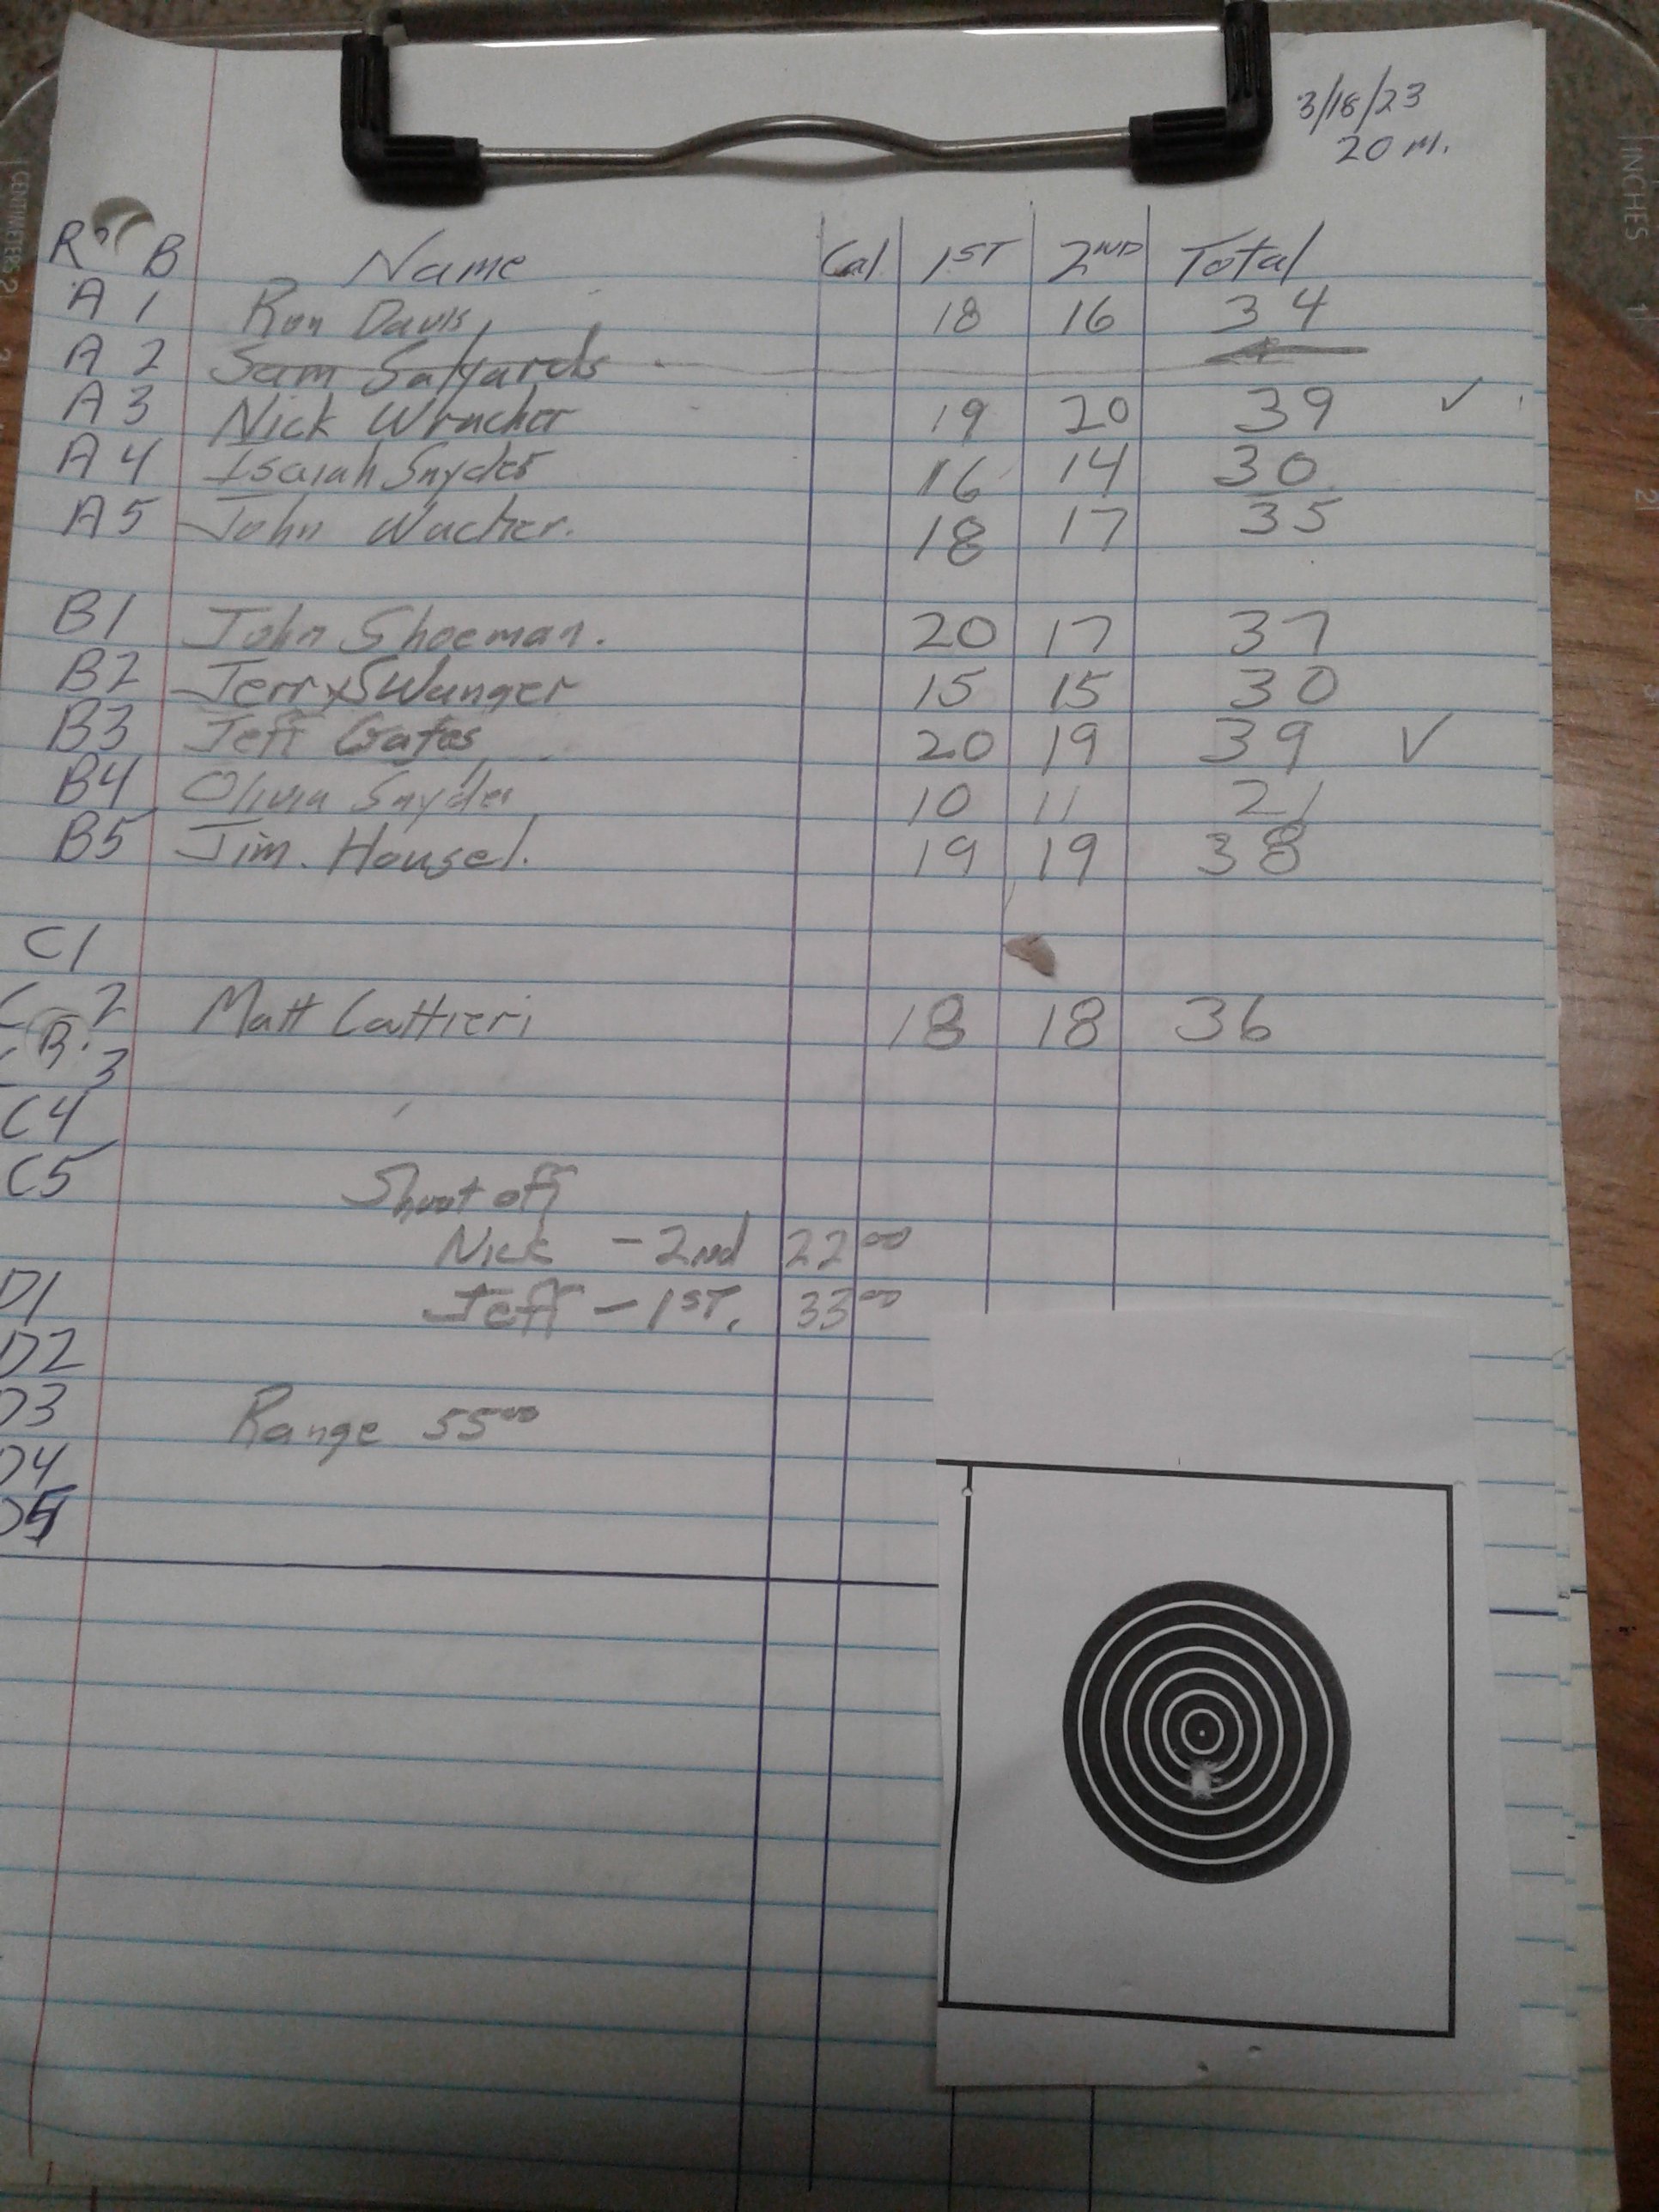 3/18/23
20 M.
R B Name Cal 1ST 2ND Total
A 1 Ron Davis 18 16 34
A 2 Sam Salyards
A 3 Nick 19 20 39 ✓
A 4 Isaiah Snyder 16 14 30
A 5 John 18 17 35
B1 John Shoeman. 20 17 37
B2 Jerry Swanger 15 15 30
B3 Jeff Gates 20 19 39 ✓
B4 Olivia Snyder 10 11 21
B5 Jim. Housel. 19 19 38
C1
C 2 Matt Cattieri 18 18 36
C 3
C4
C5
Shoot off
Nick - 2nd 22 00
Jeff - 1ST. 33 00
D1
D2
D3 Range 55 00
D4
D5
CENTIMETERS
INCHES
1
2